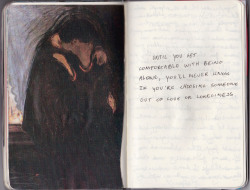 UNTIL YOU GET
COMFORTABLE WITH BEING
ALONE, YOU'LL NEVER KNOW
IF YOU'RE CHOOSING SOMEONE
OUT OF LOVE OR LONELINESS.